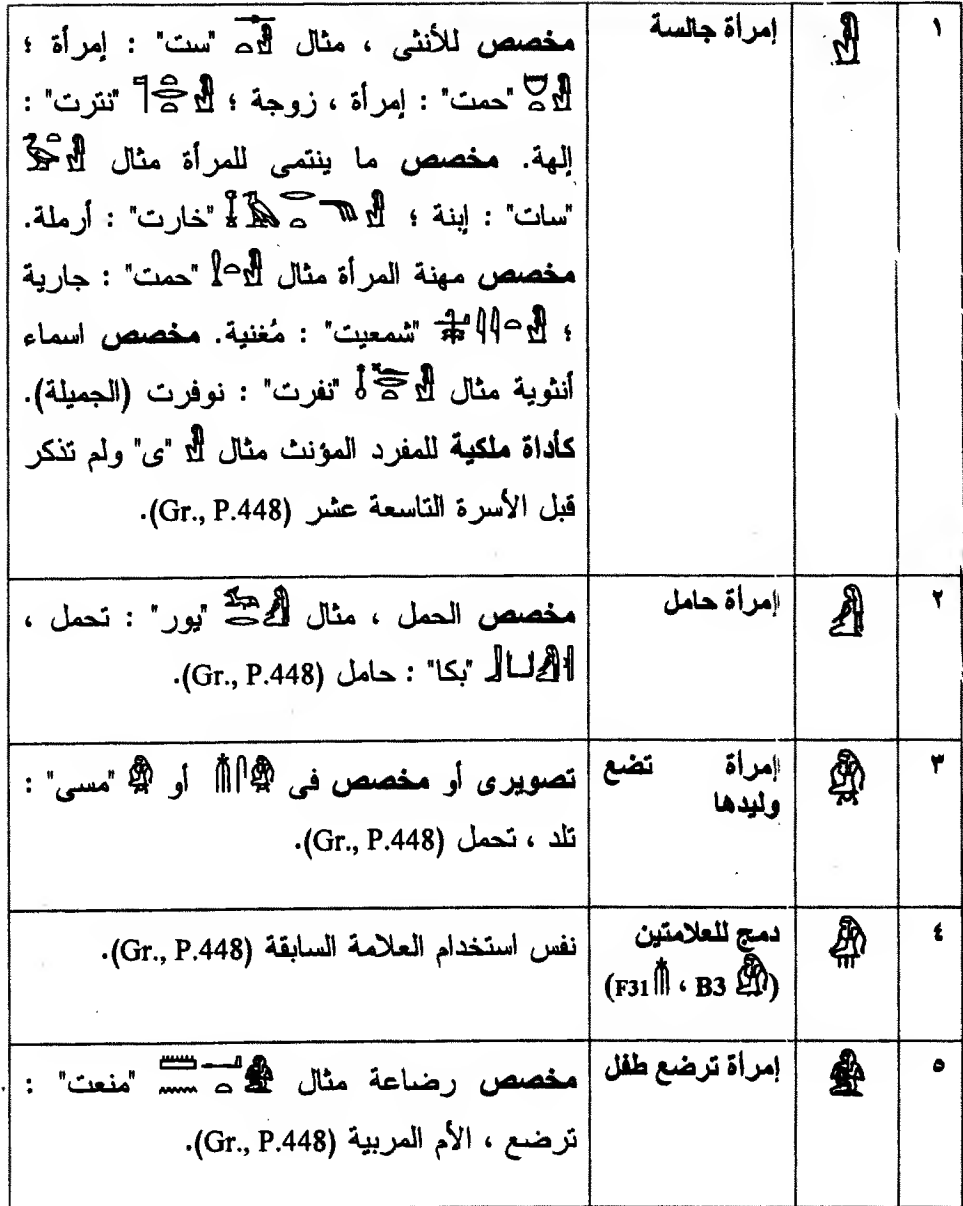 ١ 𓁐 إمرأة جالسة مخصص للأنثى ، مثال "ست" : إمرأة ؛
"حمت" : إمرأة ، زوجة ؛ "نترت" :
إلهة. مخصص ما ينتمى للمرأة مثال
"سات" : إبنة ؛ "خارت" : أرملة.
مخصص مهنة المرأة مثال "حمت" : جارية
؛ "شمعيت" : مُغنية. مخصص اسماء
أنثوية مثال "نفرت" : نوفرت (الجميلة).
كأداة ملكية للمفرد المؤنث مثال 𓁐 "ى" ولم تذكر
قبل الأسرة التاسعة عشر (Gr., P.448).
٢ 𓁑 إمرأة حامل مخصص الحمل ، مثال "يور" : تحمل ،
"بكا" : حامل (Gr., P.448).
٣ 𓁒 إمرأة تضع
وليدها
تصويرى أو مخصص فى أو 𓁒 "مسى" :
تلد ، تحمل (Gr., P.448).
٤ 𓁓 دمج للعلامتين
(F31 𓄟 ، B3 𓁒)
نفس استخدام العلامة السابقة (Gr., P.448).
٥ 𓁔 إمرأة ترضع طفل مخصص رضاعة مثال "منعت" :
ترضع ، الأم المربية (Gr., P.448).